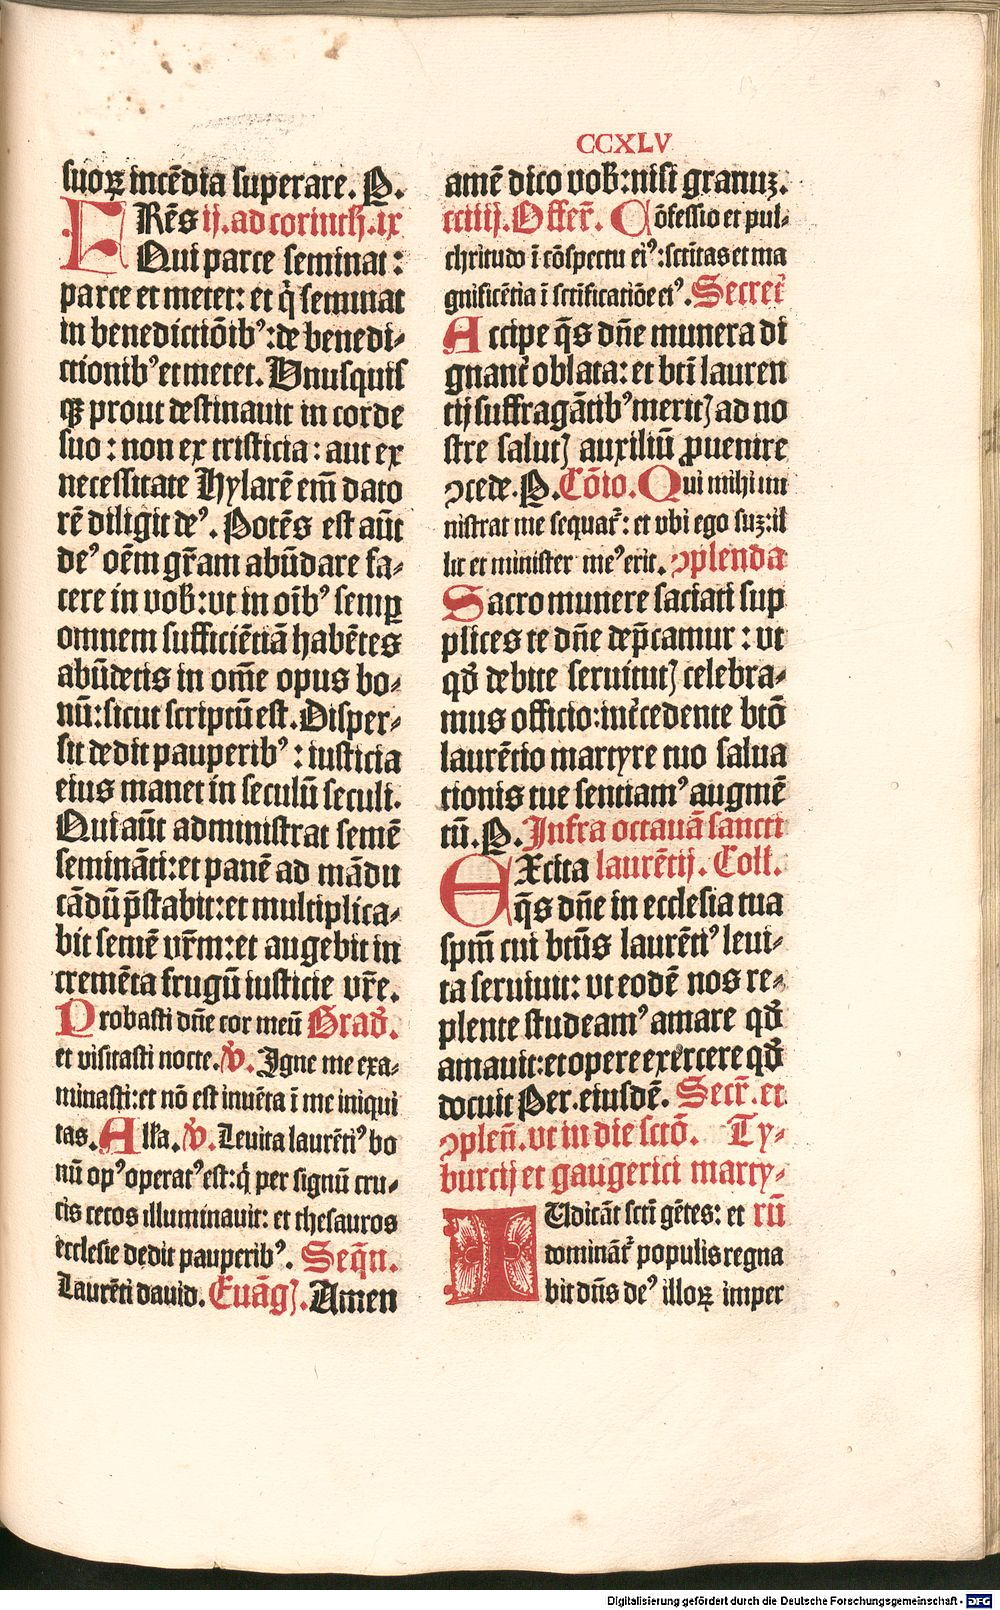 CCXLV
suoꝝ incēdia superare. P.
FRēs ij. ad corinth. ix
Qui parce seminat:
parce et metet: et q̇ seminat
in benedictiōibꝰ: de benedi-
ctionibꝰ et metet. Vnusquis
qꝫ prout destinauit in corde
suo: non ex tristicia: aut ex
necessitate Hylarē em̄ dato
rē diligit deꝰ. Potēs est aūt
deꝰ oēm gr̄am abūdare fa-
cere in vob: vt in oībꝰ semꝑ
omnem sufficiētiā habētes
abūdetis in om̄e opus bo-
nū: sicut scriptū est. Disper-
sit dedit pauperibꝰ: iusticia
eius manet in seculū seculi.
Qui aūt administrat semē
semināti: et panē ad mādu
cādū p̄stabit: et multiplica-
bit semē vr̄m: et augebit in
cremēta frugū iusticie vr̄e.
Probasti dn̄e cor meū Grad̄.
et visitasti nocte. V̄. Igne me exa-
minasti: et nō est inuēta ī me iniqui
tas. All̄a. V̄. Leuita laurētiꝰ bo
nū opꝰ operatꝰ est: q̇ per signū cru-
cis cecos illuminauit: et thesauros
ecclesie dedit pauperibꝰ. Seqn̄.
Laurēti dauid. Euāgꝭ. Amen
amē dico vob: nisi granuꝫ.
cciiij. Offer̄. Cōfessio et pul-
chritudo ī cōspectu eiꝰ: scītas et ma
gnificētia ī scīficatiōe eiꝰ. Secret̄
Accipe q̄s dn̄e munera di
gnant̄ oblata: et bt̄i lauren
tij suffragātibꝰ meritꝭ ad no
stre salutꝭ auxiliū ꝓuenire
ꝯcede. P. Cōio. Qui mihi mi
nistrat me sequat̄: et vbi ego suꝫ: il
lic et minister meꝰ erit. ꝯplenda
Sacro munere saciati sup
plices te dn̄e dep̄camur: vt
qd̄ debite seruitutꝭ celebra-
mus officio: int̄cedente btō
laurētio martyre tuo salua
tionis tue senciamꝰ augmē
tū. P. Infra octauā sancti
EXcita laurētij. Coll.
q̄s dn̄e in ecclesia tua
spm̄ cui bt̄us laurētiꝰ leui-
ta seruiuit: vt eodē nos re-
plente studeamꝰ amare qd̄
amauit: et opere exercere qd̄
docuit Per. eiusdē. Secr̄. et
ꝯplen̄. vt in die sctō. Ty-
burcij et gaugerici marty-
IUdicāt sct̄i gētes: et rū
domināt̄ populis regna
bit dn̄s deꝰ illoꝝ imper
Digitalisierung gefördert durch die Deutsche Forschungsgemeinschaft - DFG